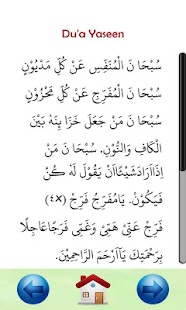 Du'a Yaseen
سُبْحَا نَ الْمُنَفِّسِ عَنْ كُلِّ مَدْيُوْنٍ
سُبْحَا نَ الْمُفَرِّجِ عَنْ كُلِّ مَحْزُوْنٍ
سُبْحَا نَ مَنْ جَعَلَ خَزَا ئِنَهٗ بَيْنَ
الْكَافِ وَالنُّوْنِ. سُبْحَا نَ مَنْ
اِذَااَرَادَشَيْئًااَنْ يَقُوْلَ لَهٗ كُنْ
فَيَكُوْنُ. يَامُفَرِّجُ فَرِّجْ (٤x)
فَرِّجْ عَنِّى هَمِّىْ وَغَمِّىْ فَرَجًاعَاجِلًا
بِرَحْمَتِكَ يَآاَرْحَمَ الرَّاحِمِيْنَ.